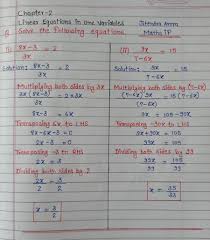 Chapter-2
Linear Equations in one Variables
Maths TP
Q. Solve the following equations.
8x-3 / 3x = 2
Solution: 8x-3 / 3x = 2
Multiplying both sides by 3x
8x-3 / 3x × 3x = 2×3x
8x-3 = 6x
Transposing 6x to LHS
8x-6x-3=0
2x-3=0
Transposing -3 to RHS
2x = 3
Dividing both sides by 2
2x/2 = 3/2
x = 3/2
(ii) 9x / 7-6x = 15
Solution: 9x / 7-6x = 15
Multiplying both sides by (7-6x)
9x = 105-90x
Transposing -90x to LHS
9x+90x=105
99x = 105
Dividing both sides by 99
99x/99 = 105/99
x = 35/33